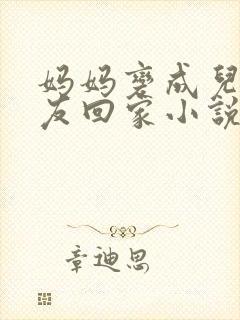 妈妈变成兒
友回家小説
章迪思